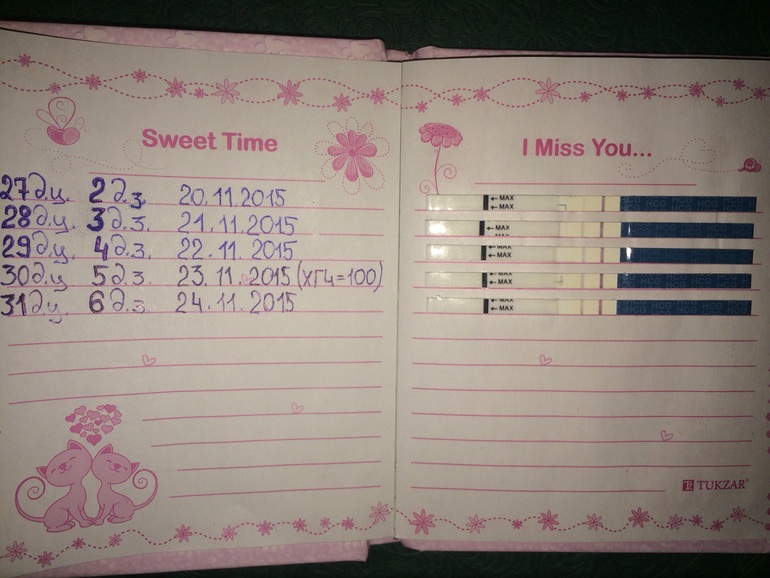 Sweet Time
27д.ц. 2д.з. 20.11.2015
28д.ц. 3д.з. 21.11.2015
29д.ц. 4д.з. 22.11.2015
30д.ц 5д.з. 23.11.2015 (ХГЧ=100)
31д.ц. 6д.з. 24.11.2015
I Miss You...
←MAX
←MAX
←MAX
←MAX
←MAX
←MAX
←MAX
←MAX
←MAX
TUKZAR®